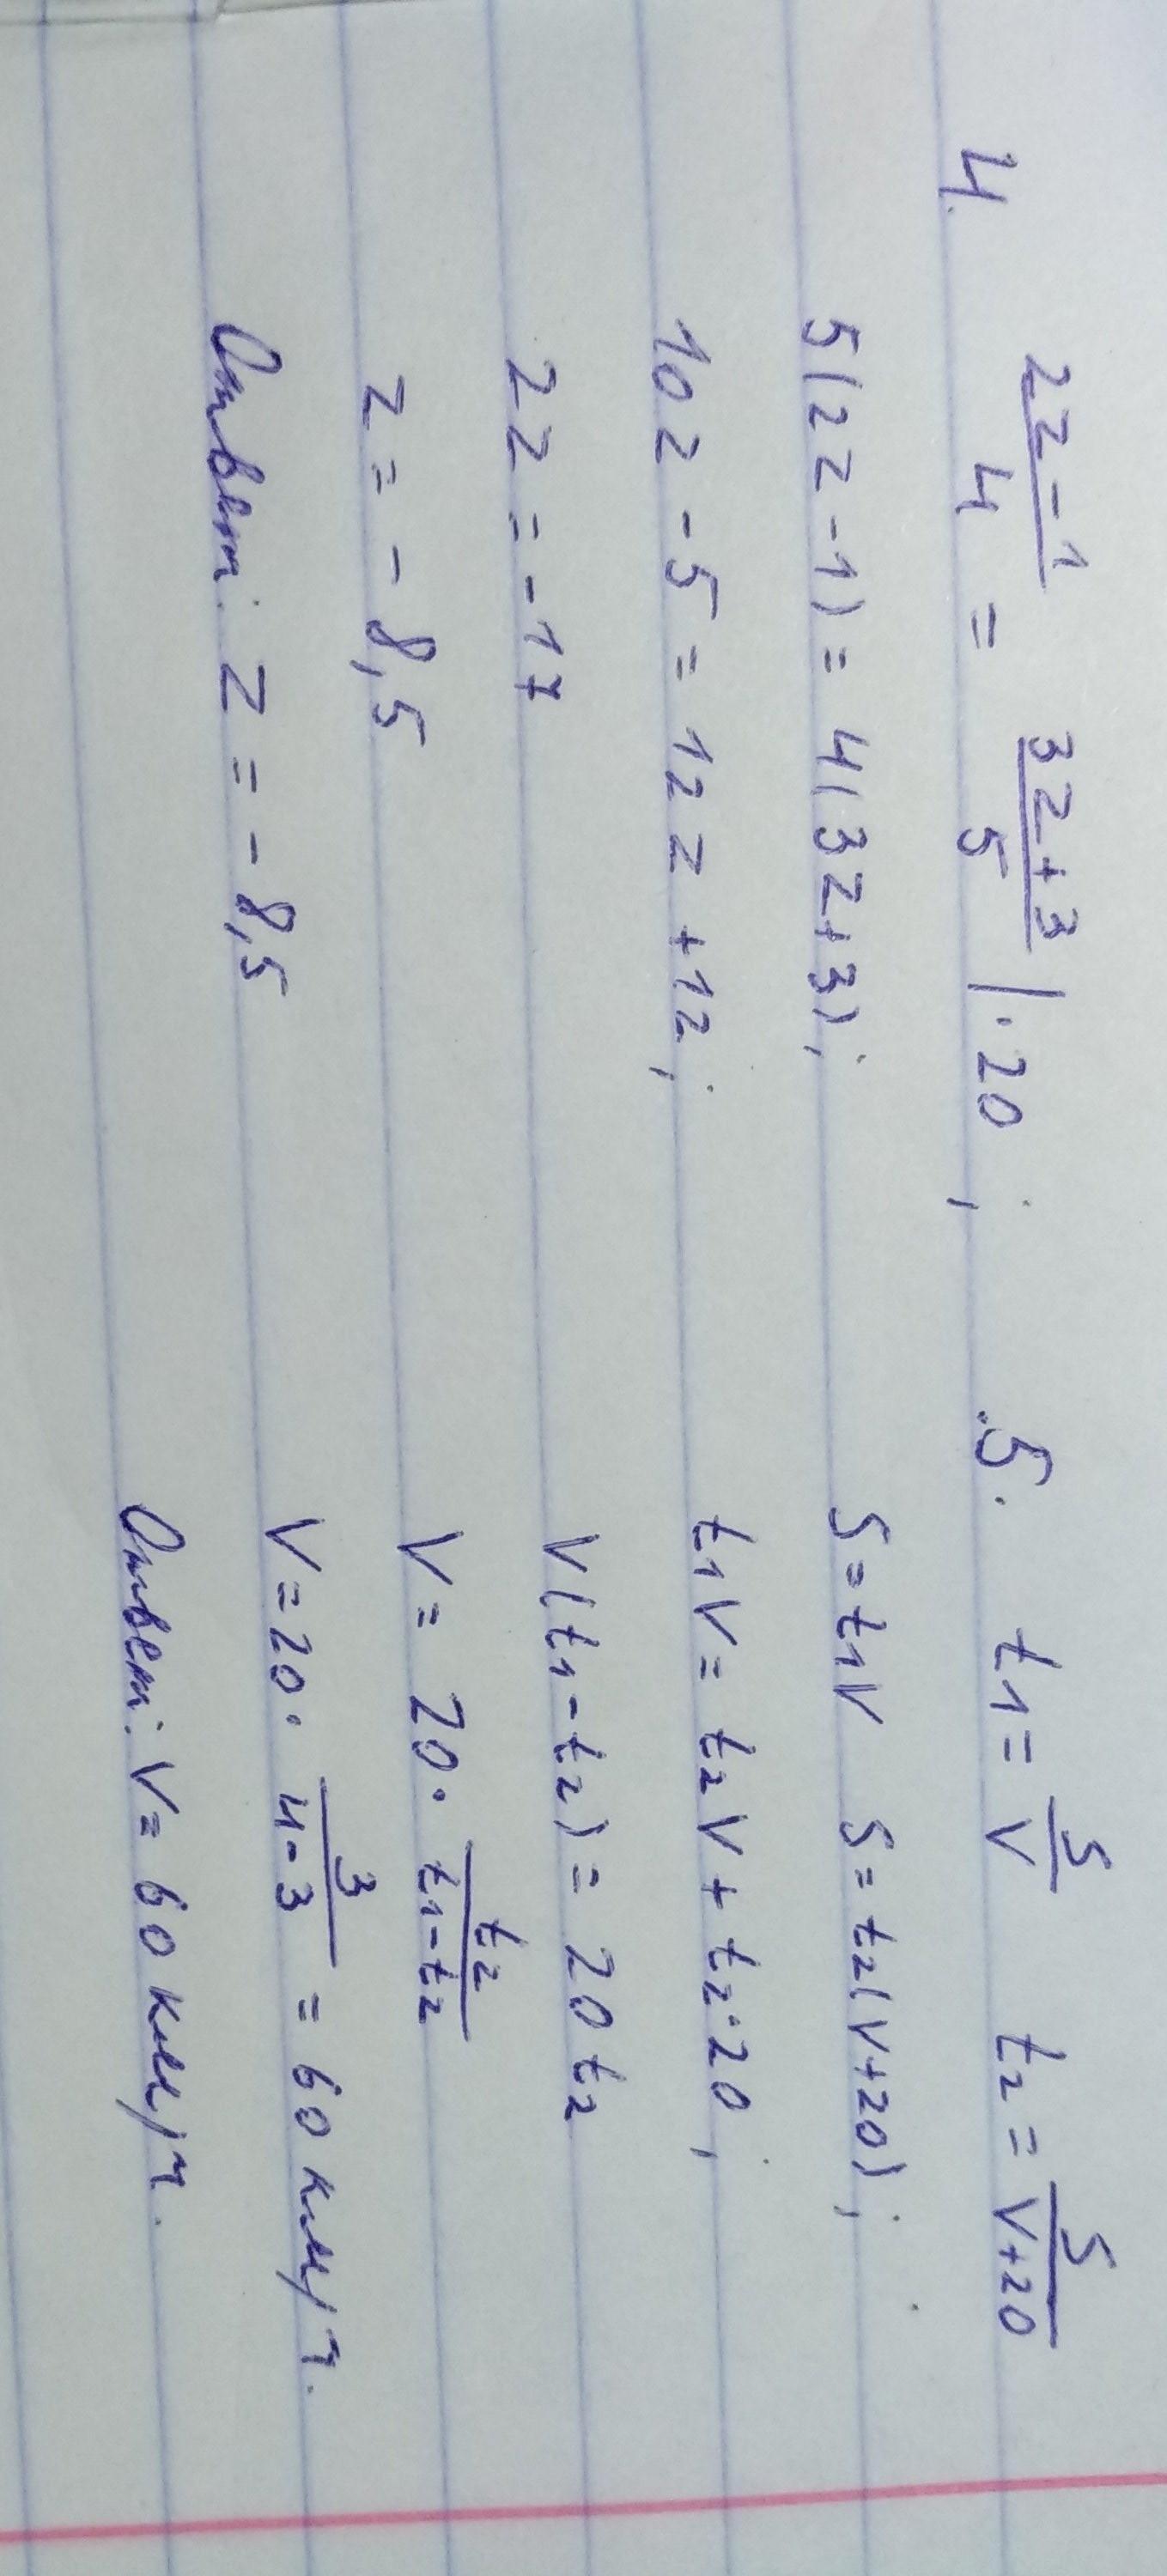 4. (2z-1)/4 = (3z+3)/5 |·20 ;
5(2z-1) = 4(3z+3);
10z - 5 = 12z + 12;
2z = -17
z = -8,5
Ответ: z = -8,5
5. t1 = S/V t2 = S/(V+20)
S = t1V S = t2(V+20);
t1V = t2V + t2·20;
V(t1-t2) = 20t2
V = 20· t2/(t1-t2)
V = 20· 3/(4-3) = 60 км/ч.
Ответ: V = 60 км/ч.